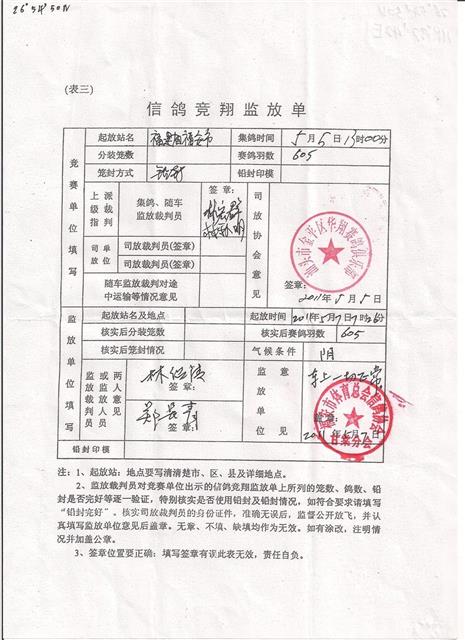 26°54′50N
(表三)
信鸽竞翔监放单
竞赛单位填写
起放站名
福建省福安市
集鸽时间
5月5日13时00分
分装笼数
赛鸽羽数
605
笼封方式
铅封
铅封印模
上级指派裁判
集鸽、随车
监放裁判员
签章:
司放单位
司放裁判员(签章)
司放裁判员(签章)
随车监放裁判对途
中运输等情况意见
司放协会意见
汕头市金平区华翔赛鸽俱乐部
签章:
2011年5月5日
监放单位填写
起放站名及地点
起放时间
2011年5月7日7时26分
核实后分装笼数
核实后赛鸽羽数
605
核实后笼封情况
气候条件
阴
监放裁判员或两监放人意见签章
签章:
签章:
监放单位意见
车上一切正常
签章:
2011年5月7日
市体育总会信鸽协会
甘棠分会
铅封印模
注:1、起放站:地点要写清清楚市、区、县及详细地点。
2、监放裁判员对竞赛单位出示的信鸽竞翔监放单上所列的笼数、鸽数、铅
封是否完好等逐一验证,特别核实是否使用铅封及铅封情况,如符合要求请填写
“铅封完好”。核实司放裁判员的身份证件,准确无误后,监督公开放飞,并认
真填写监放单位意见后盖章。无章、不填、缺填均作为无效。如有涂改,注明情
况并加盖公章。
3、签章位置要正确:填写签章有误此表无效,责任自负。